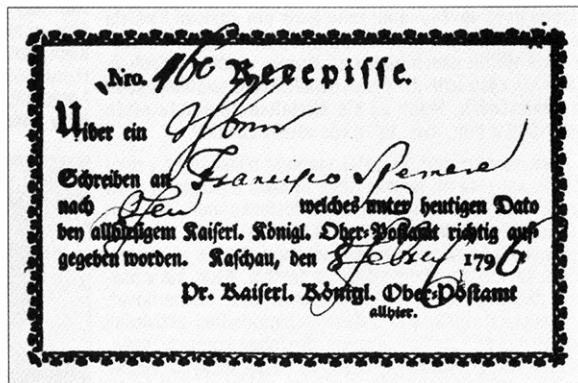 Nro. 160 Recepisse.
Uiber ein
Schreiben an Francisco
nach Ofen welches unter heutigen Dato
bey allhiesigem Kaiserl. Königl. Ober-Postamt richtig auf
gegeben worden. Kaschau, den 8 Febru 1796
Pr. Kaiserl. Königl. Ober-Postamt
allhier.